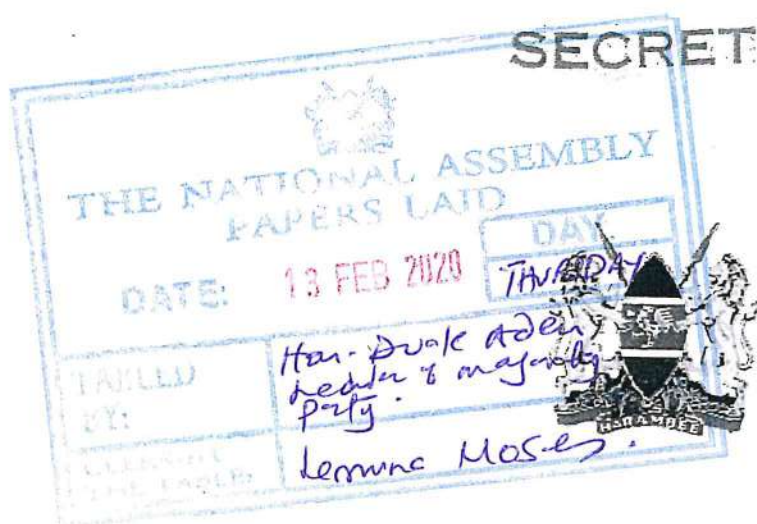 SECRET
THE NATIONAL ASSEMBLY
PAPERS LAID
DATE: 13 FEB 2020
DAY
THURSDAY
TABLED
BY:
Hon. Duale Aden
Leader of majority
party.
CLERK-AT
THE-TABLE:
Lemuna Moses.
HARAMBEE